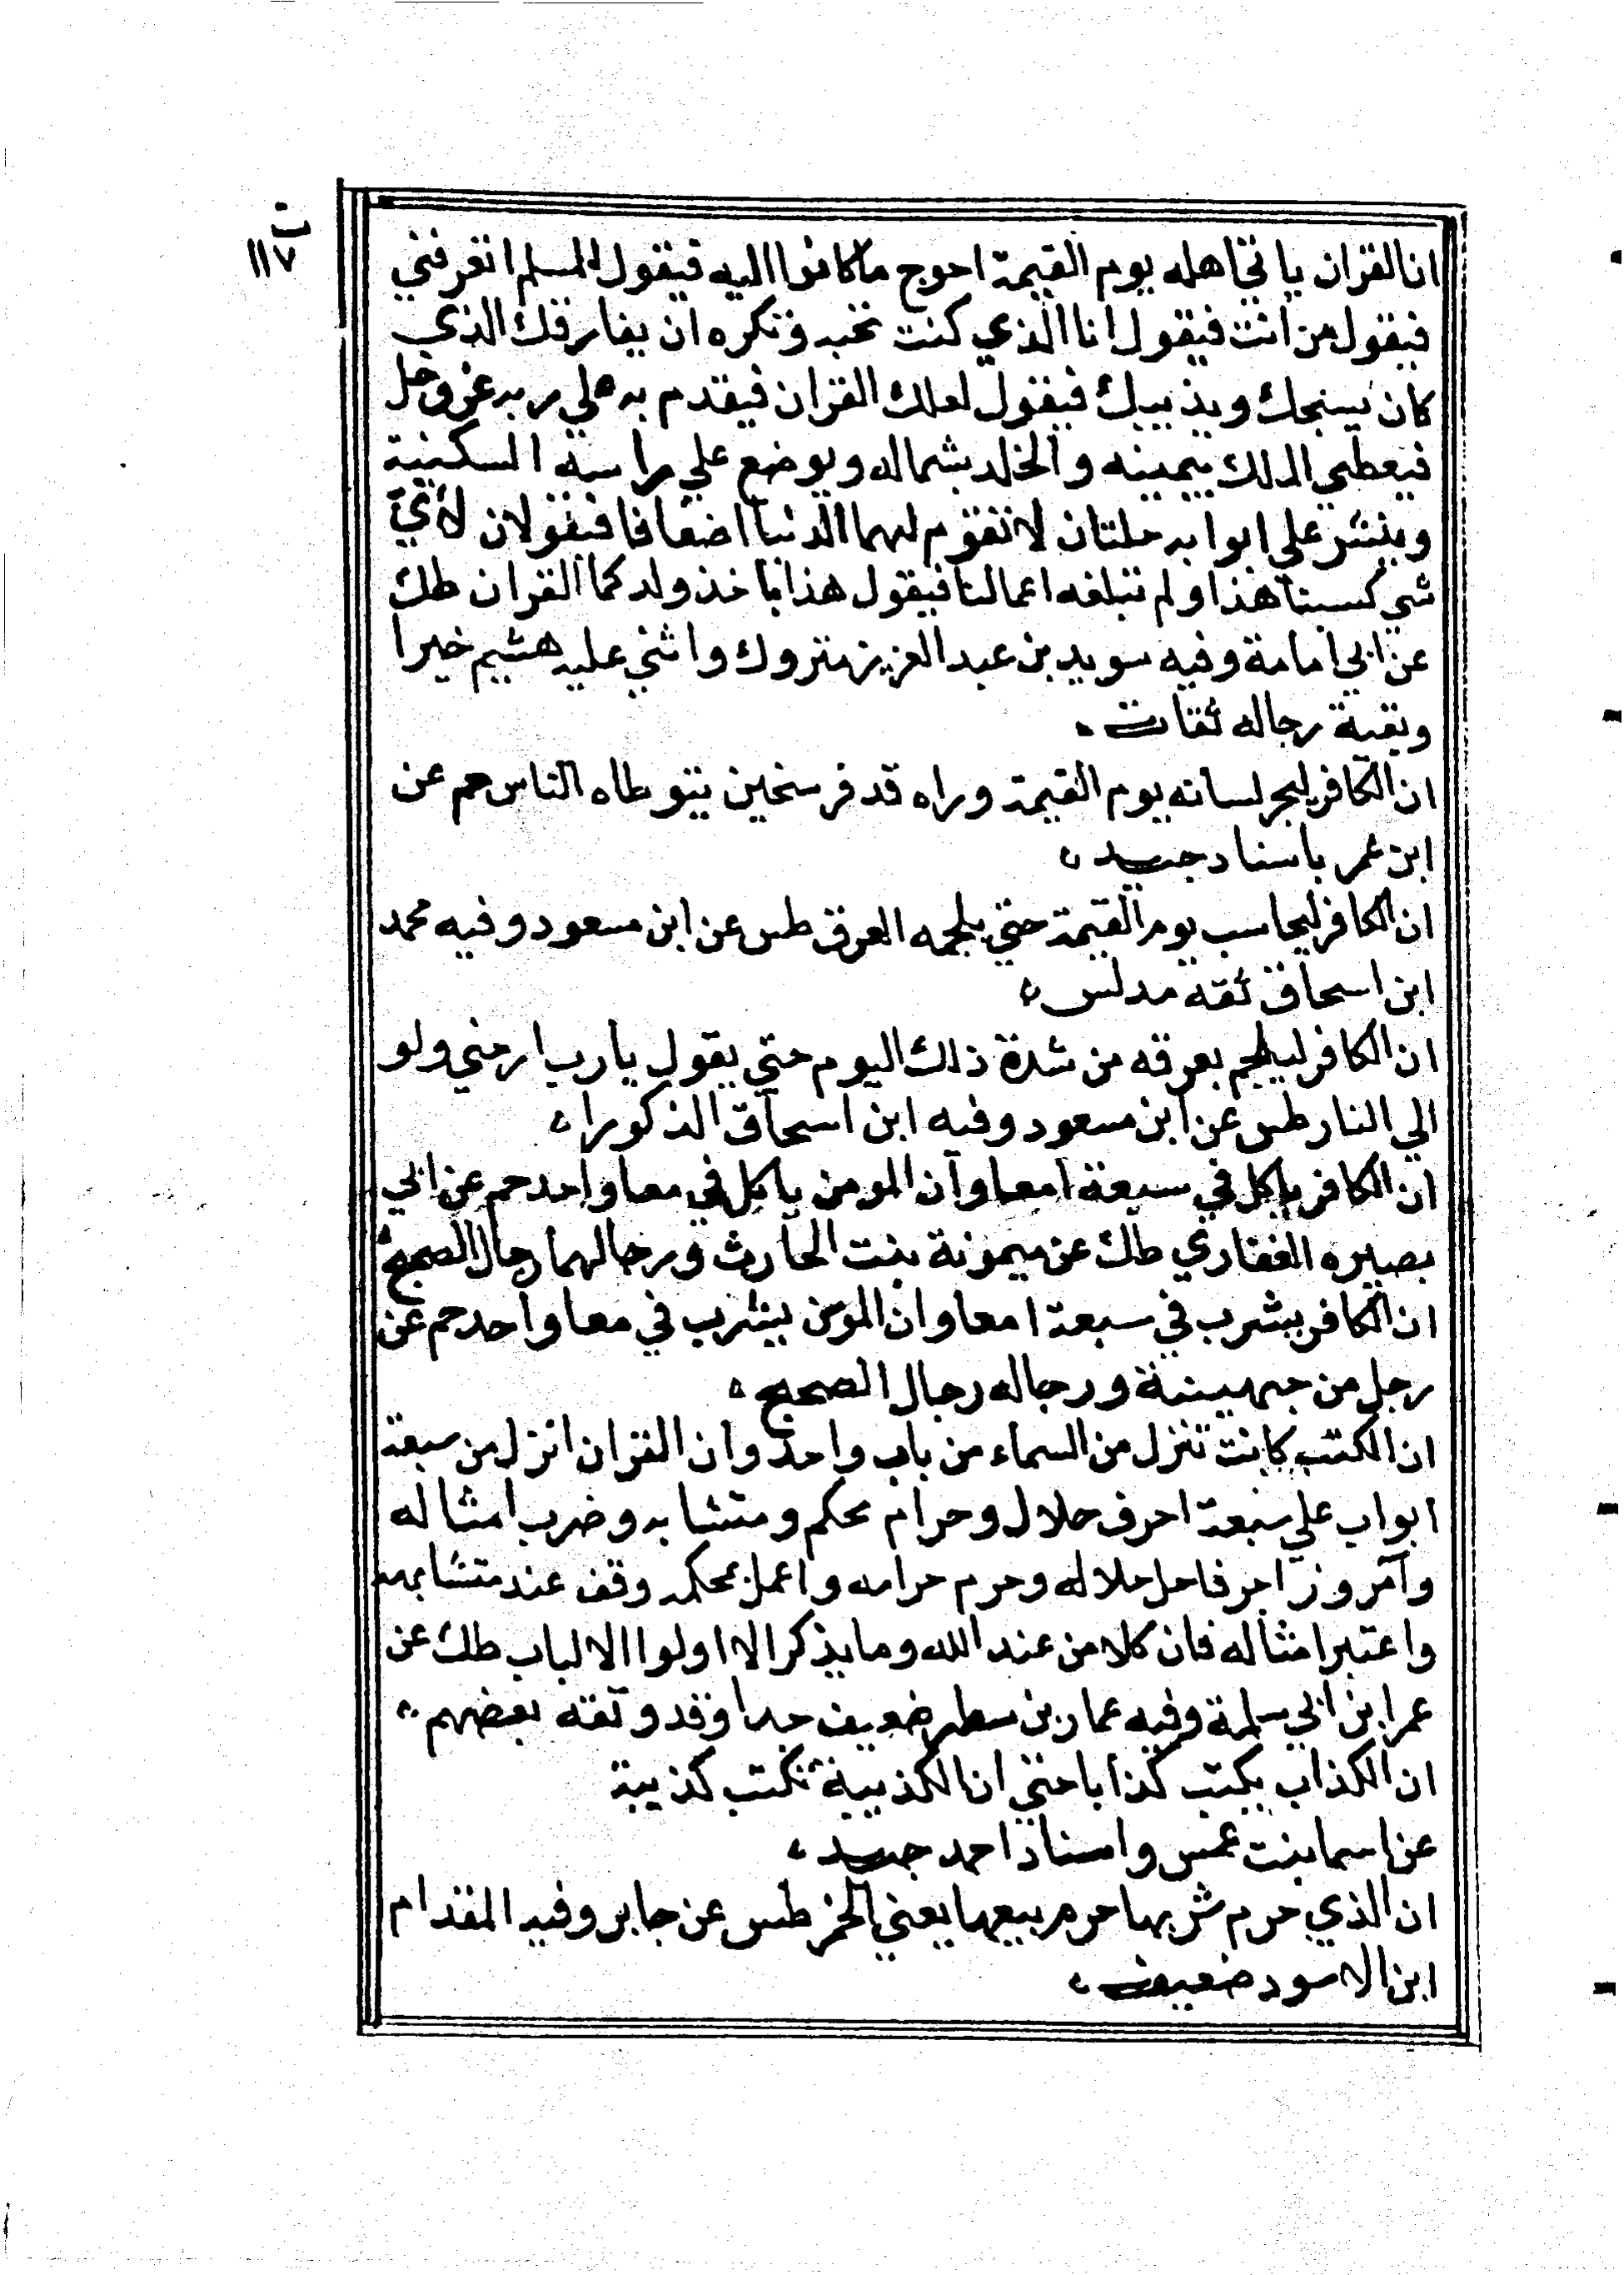 ت
١١٧
ان القران ياتي اهله يوم القيمة احوج ما كانوا اليه فيقول للمسلم اتعرفني
فيقول من انت فيقول انا الذي كنت تحبه وتكره ان يفارقك الذي
كان يسنحبك ويذيبك فيقول لعلك القران فيقدم به علي ربه عز وجل
فيعطي الملك بيمينه والخلد بشماله ويوضع علي راسه السكينة
وينشر علي ابوابه حلتان لا تقوم لهما الدنيا اضعافا فيقولان لأيّ
شي كسبنا هذا ولم تبلغه اعمالنا فيقول هذا باخذ ولدكما القران طك
عن ابي امامة وفيه سويد بن عبد العزيز متروك واثني عليه هشيم خيرا
وبقية رجاله ثقات
ان الكافر ليجر لسانه يوم القيمة وراه قد فرسخين يتوطاه الناس حم عن
ابن عمر باسناد جيد
ان الكافر ليحاسب يوم القيمة حتي يلجمه العرق طس عن ابن مسعود وفيه محمد
ابن اسحاق ثقه مدلس
ان الكافر ليلجم بعرقه من شدة ذلك اليوم حتي يقول يارب ارحني ولو
الي النار طس عن ابن مسعود وفيه ابن اسحاق المذكورا
ان الكافر ياكل في سبعة امعا وان المومن ياكل في معا واحد حم عن ابي
بصيره الغفاري طك عن ميمونة بنت الحارث ورجالهما رجال الصحيح
ان الكافر يشرب في سبعة امعا وان المومن يشرب في معا واحد حم عن
رجل من جهينة ورجاله رجال الصحيح
ان الكتب كانت تنزل من السماء من باب واحد وان القران انزل من سبعة
ابواب علي سبعة احرف حلال وحرام محكم ومتشابه وضرب امثاله
وآمر وزاجر فاحل حلاله وحرم حرامه واعمل بمحكمه وقف عند متشابهه
واعتبر امثاله فان كلا من عند الله وما يذكر الا اولوا الالباب طك عن
عمر ابن ابي سلمة وفيه عمار بن مطر ضعيف جدا وقد وثقه بعضهم
ان الكذاب يكتب كذابا حتي ان الكذيبة تكتب كذيبة
عن اسما بنت عمس واسناد احمد جيد
ان الذي حرم شربها حرم بيعها يعني الخمر طس عن جابر وفيه المقدام
ابن الاسود ضعيف